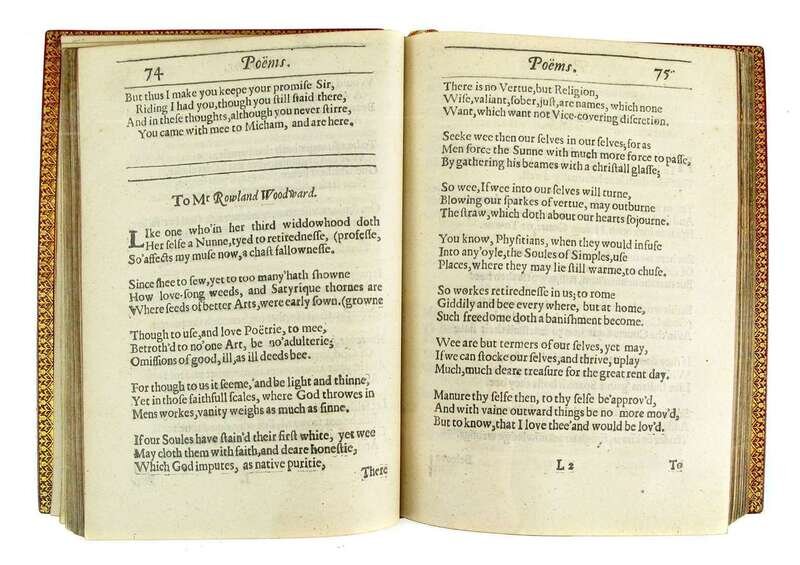 74
Poëms.
But thus I make you keepe your promiſe Sir,
Riding I had you, though you ſtill ſtaid there,
And in theſe thoughts, although you never ſtirre,
You came with mee to Micham, and are here.
To Mr Rowland Woodward.
LIke one who'in her third widdowhood doth
Her ſelfe a Nunne, tyed to retiredneſſe, (profeſſe,
So'affects my muſe now, a chaſt fallowneſſe.
Since ſhee to few, yet to too many'hath ſhowne
How love-ſong weeds, and Satyrique thornes are
Where ſeeds of better Arts, were early ſown. (growne
Though to uſe, and love Poëtrie, to mee,
Betroth'd to no'one Art, be no'adulterie;
Omiſſions of good, ill, as ill deeds bee.
For though to us it ſeeme,'and be light and thinne,
Yet in thoſe faithfull ſcales, where God throwes in
Mens workes, vanity weighs as much as ſinne.
If our Soules have ſtain'd their firſt white, yet wee
May cloth them with faith, and deare honeſtie,
Which God imputes, as native puritie,
There
Poëms.
75
There is no Vertue, but Religion,
Wiſe, valiant, ſober, juſt, are names, which none
Want, which want not Vice-covering diſcretion.
Seeke wee then our ſelves in our ſelves; for as
Men force the Sunne with much more force to paſſe,
By gathering his beames with a chriſtall glaſſe;
So wee, If wee into our ſelves will turne,
Blowing our ſparkes of vertue, may outburne
The ſtraw, which doth about our hearts ſojourne.
You know, Phyſitians, when they would infuſe
Into any'oyle, the Soules of Simples, uſe
Places, where they may lie ſtill warme, to chuſe.
So workes retiredneſſe in us; to rome
Giddily and bee every where, but at home,
Such freedome doth a baniſhment become.
Wee are but termers of our ſelves, yet may,
If we can ſtocke our ſelves, and thrive, uplay
Much, much deare treaſure for the great rent day.
Manure thy ſelfe then, to thy ſelfe be'approv'd,
And with vaine outward things be no more mov'd,
But to know, that I love thee'and would be lov'd.
L 2
To